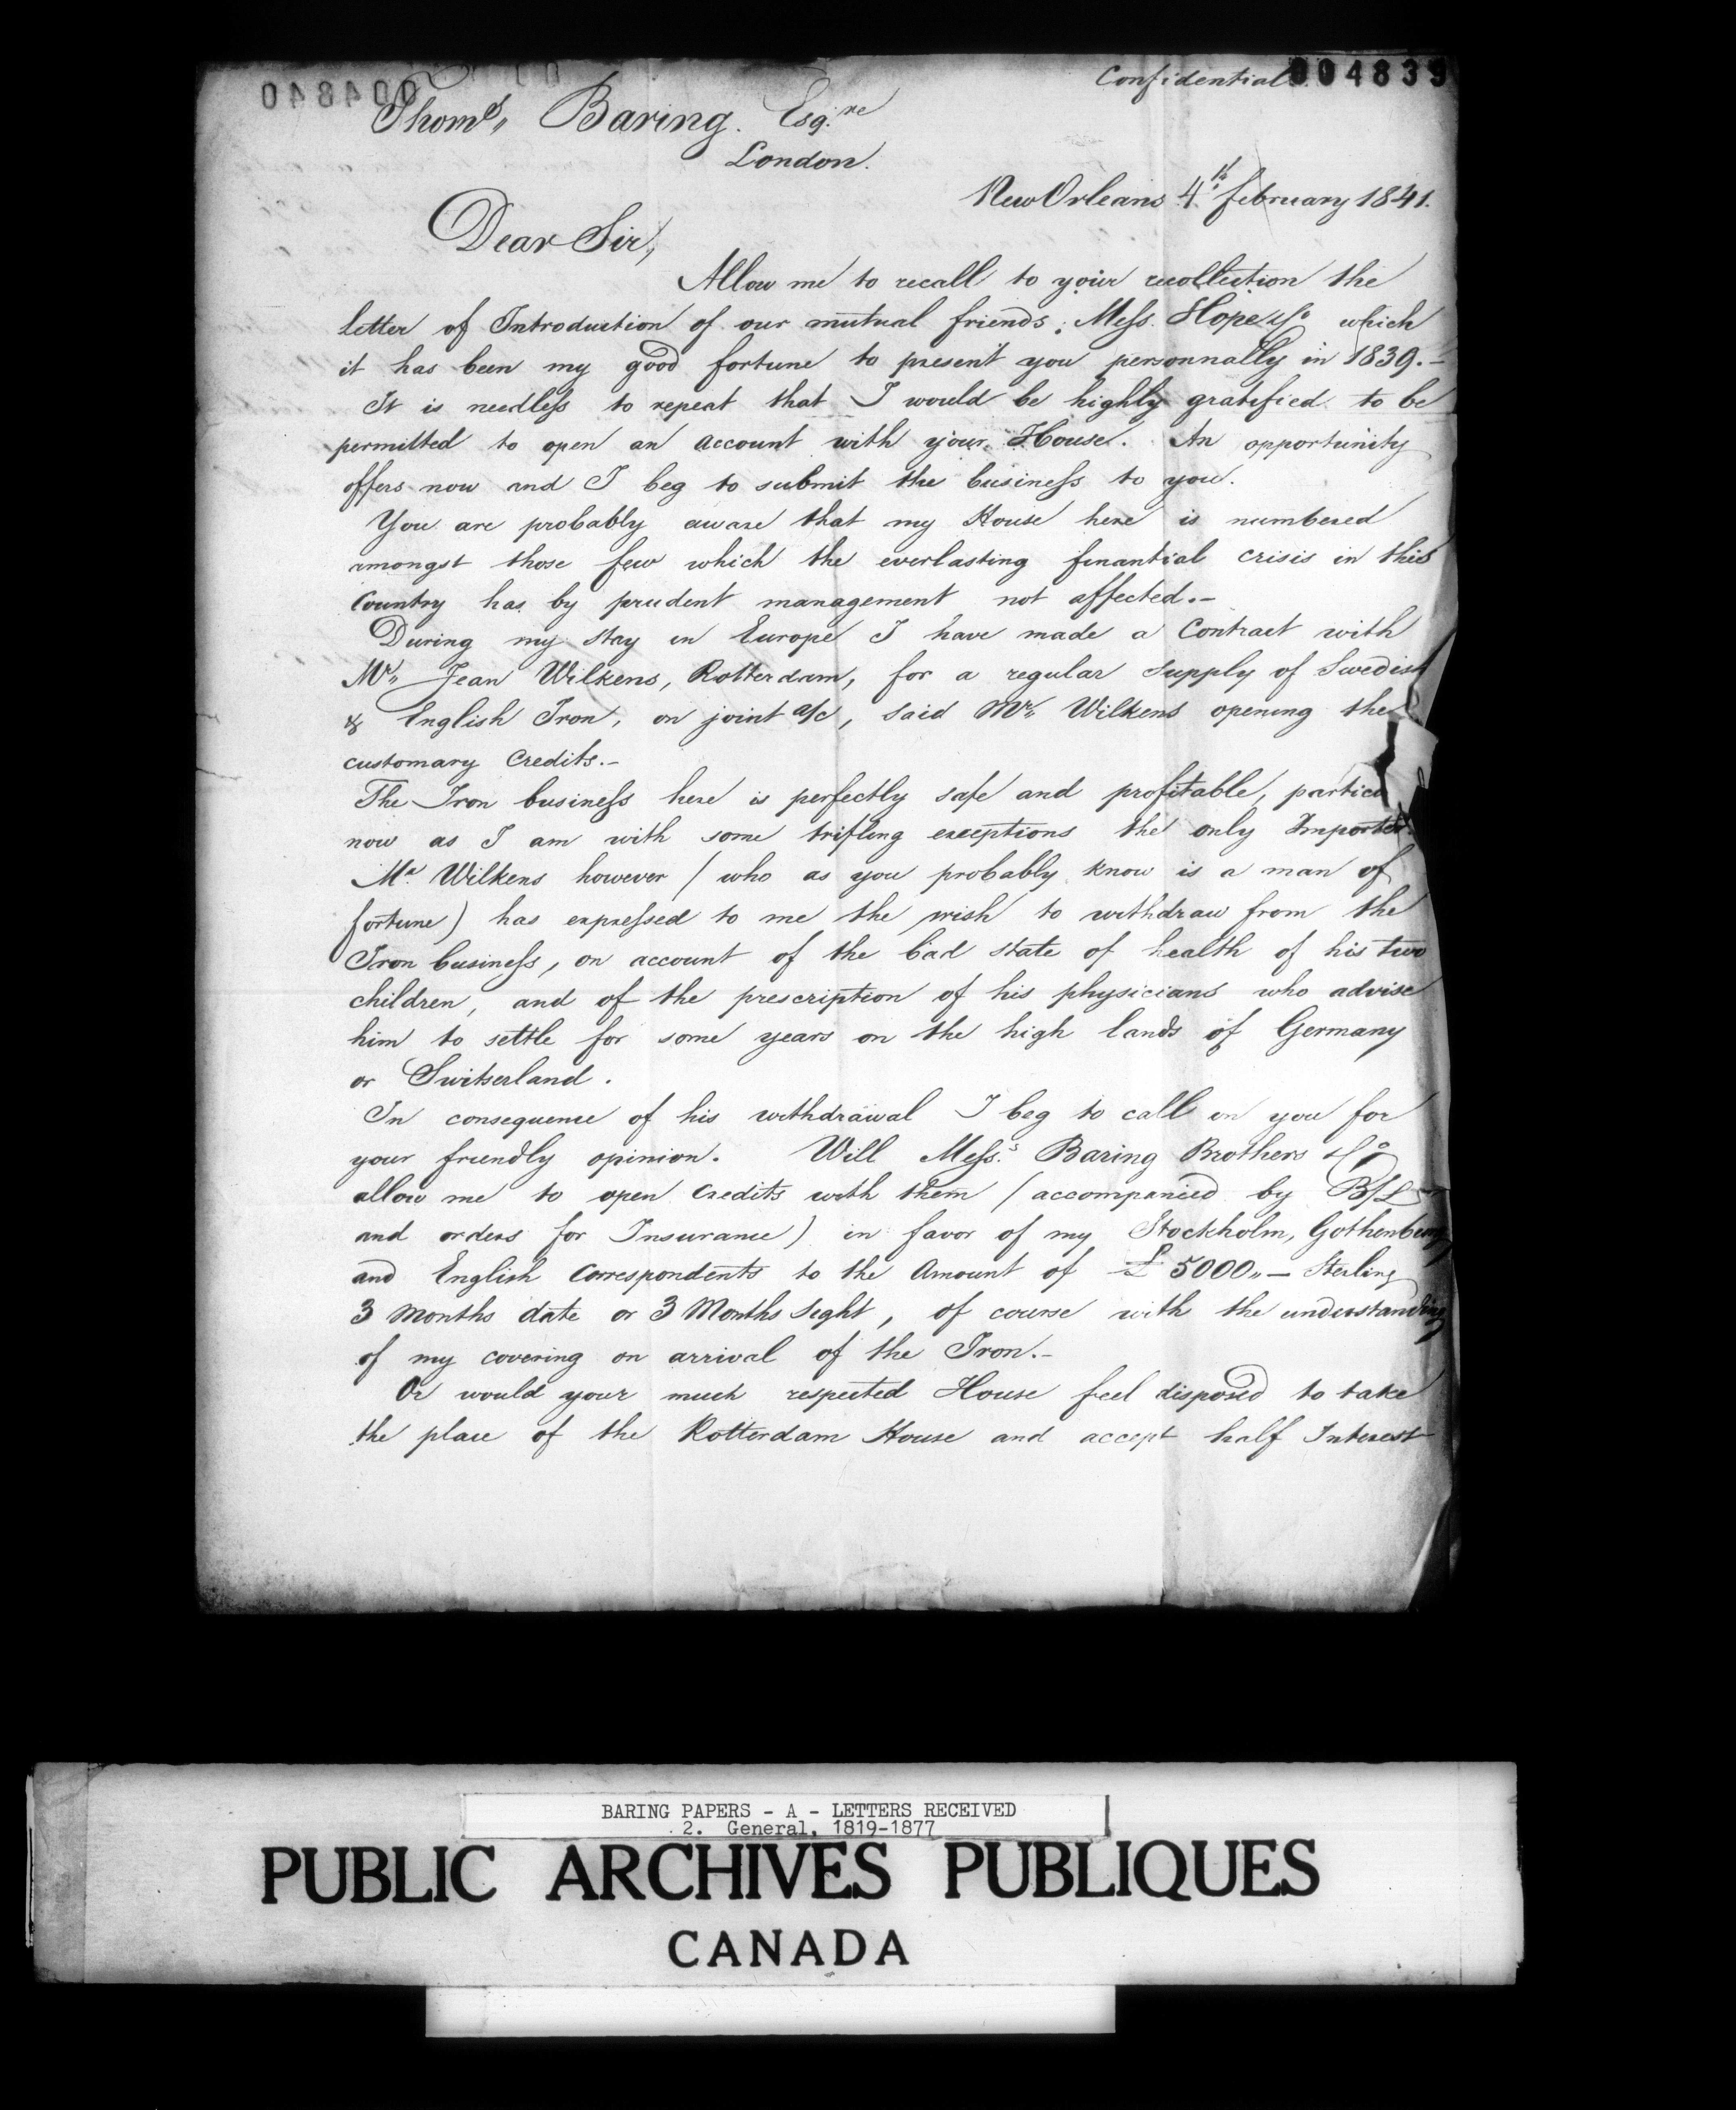 Confidential 004839
004840
Thom.s Baring. Esq.re
London.
New Orleans 4.th february 1841.
Dear Sir,
Allow me to recall to your recollection the
letter of Introduction of our mutual friends, Mess. Hope & Co which
it has been my good fortune to present you personnally in 1839.-
It is needless to repeat that I would be highly gratified to be
permitted to open an account with your House. An opportunity
offers now and I beg to submit the business to you.
You are probably aware that my House here is numbered
amongst those few which the everlasting finantial crisis in this
Country has by prudent management not affected.-
During my stay in Europe I have made a Contract with
Mr. Jean Wilkens, Rotterdam, for a regular supply of Swedish
& English Iron, on joint a/c, said Mr. Wilkens opening the
customary Credits.-
The Iron business here is perfectly safe and profitable, particu
now as I am with some trifling exceptions the only Importer.
Mr. Wilkens however / who as you probably know is a man of
fortune) has expressed to me the wish to withdraw from the
Iron business, on account of the bad state of health of his two
children, and of the prescription of his physicians who advise
him to settle for some years on the high lands of Germany
or Switserland.
In consequence of his withdrawal I beg to call on you for
your friendly opinion. Will Mess.s Baring Brothers & Co
allow me to open Credits with them / accompanied by B/L
and orders for Insurance) in favor of my Stockholm, Gothenburg
and English Correspondents to the Amount of £ 5000,,— Sterling
3 Months date or 3 Months Sight, of course with the understanding
of my covering on arrival of the Iron.-
Or would your much respected House feel disposed to take
the place of the Rotterdam House and accept half Interest
BARING PAPERS - A - LETTERS RECEIVED
2. General, 1819-1877
PUBLIC ARCHIVES PUBLIQUES
CANADA